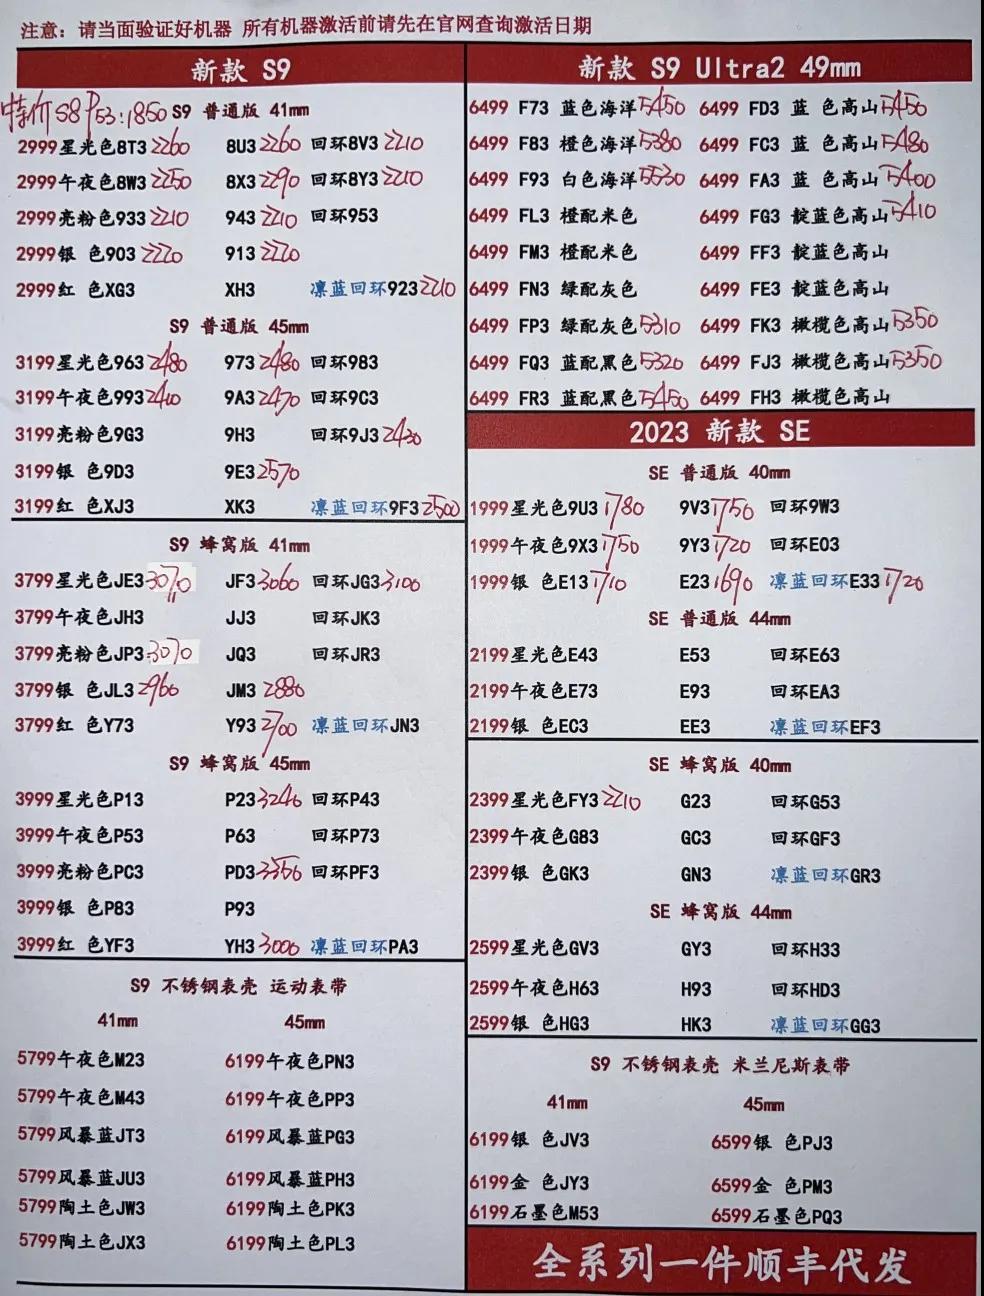 注意：请当面验证好机器 所有机器激活前请先在官网查询激活日期
新款 S9
特价 S8 P53:1850 S9 普通版 41mm
2999星光色8T3 2260 8U3 2260 回环8V3 2210
2999午夜色8W3 2250 8X3 2290 回环8Y3 2210
2999亮粉色933 2210 943 2210 回环953
2999银 色903 2220 913 2220
2999红 色XG3 XH3 凛蓝回环923 2210
S9 普通版 45mm
3199星光色963 2480 973 2480 回环983
3199午夜色993 2410 9A3 2470 回环9C3
3199亮粉色9G3 9H3 回环9J3 2430
3199银 色9D3 9E3 2570
3199红 色XJ3 XK3 凛蓝回环9F3 2500
S9 蜂窝版 41mm
3799星光色JE3 3070 JF3 3060 回环JG3 3100
3799午夜色JH3 JJ3 回环JK3
3799亮粉色JP3 3070 JQ3 回环JR3
3799银 色JL3 2960 JM3 2880
3799红 色Y73 Y93 2700 凛蓝回环JN3
S9 蜂窝版 45mm
3999星光色P13 P23 3240 回环P43
3999午夜色P53 P63 回环P73
3999亮粉色PC3 PD3 3350 回环PF3
3999银 色P83 P93
3999红 色YF3 YH3 3000 凛蓝回环PA3
S9 不锈钢表壳 运动表带
41mm 45mm
5799午夜色M23 6199午夜色PN3
5799午夜色M43 6199午夜色PP3
5799风暴蓝JT3 6199风暴蓝PG3
5799风暴蓝JU3 6199风暴蓝PH3
5799陶土色JW3 6199陶土色PK3
5799陶土色JX3 6199陶土色PL3
新款 S9 Ultra2 49mm
6499 F73 蓝色海洋 5450 6499 FD3 蓝 色高山 5450
6499 F83 橙色海洋 5380 6499 FC3 蓝 色高山 5480
6499 F93 白色海洋 5530 6499 FA3 蓝 色高山 5400
6499 FL3 橙配米色 6499 FG3 靛蓝色高山 5410
6499 FM3 橙配米色 6499 FF3 靛蓝色高山
6499 FN3 绿配灰色 6499 FE3 靛蓝色高山
6499 FP3 绿配灰色 5310 6499 FK3 橄榄色高山 5350
6499 FQ3 蓝配黑色 5320 6499 FJ3 橄榄色高山 5350
6499 FR3 蓝配黑色 5450 6499 FH3 橄榄色高山
2023 新款 SE
SE 普通版 40mm
1999星光色9U3 1780 9V3 1750 回环9W3
1999午夜色9X3 1750 9Y3 1720 回环E03
1999银 色E13 1710 E23 1690 凛蓝回环E33 1720
SE 普通版 44mm
2199星光色E43 E53 回环E63
2199午夜色E73 E93 回环EA3
2199银 色EC3 EE3 凛蓝回环EF3
SE 蜂窝版 40mm
2399星光色FY3 2210 G23 回环G53
2399午夜色G83 GC3 回环GF3
2399银 色GK3 GN3 凛蓝回环GR3
SE 蜂窝版 44mm
2599星光色GV3 GY3 回环H33
2599午夜色H63 H93 回环HD3
2599银 色HG3 HK3 凛蓝回环GG3
S9 不锈钢表壳 米兰尼斯表带
41mm 45mm
6199银 色JV3 6599银 色PJ3
6199金 色JY3 6599金 色PM3
6199石墨色M53 6599石墨色PQ3
全系列一件顺丰代发